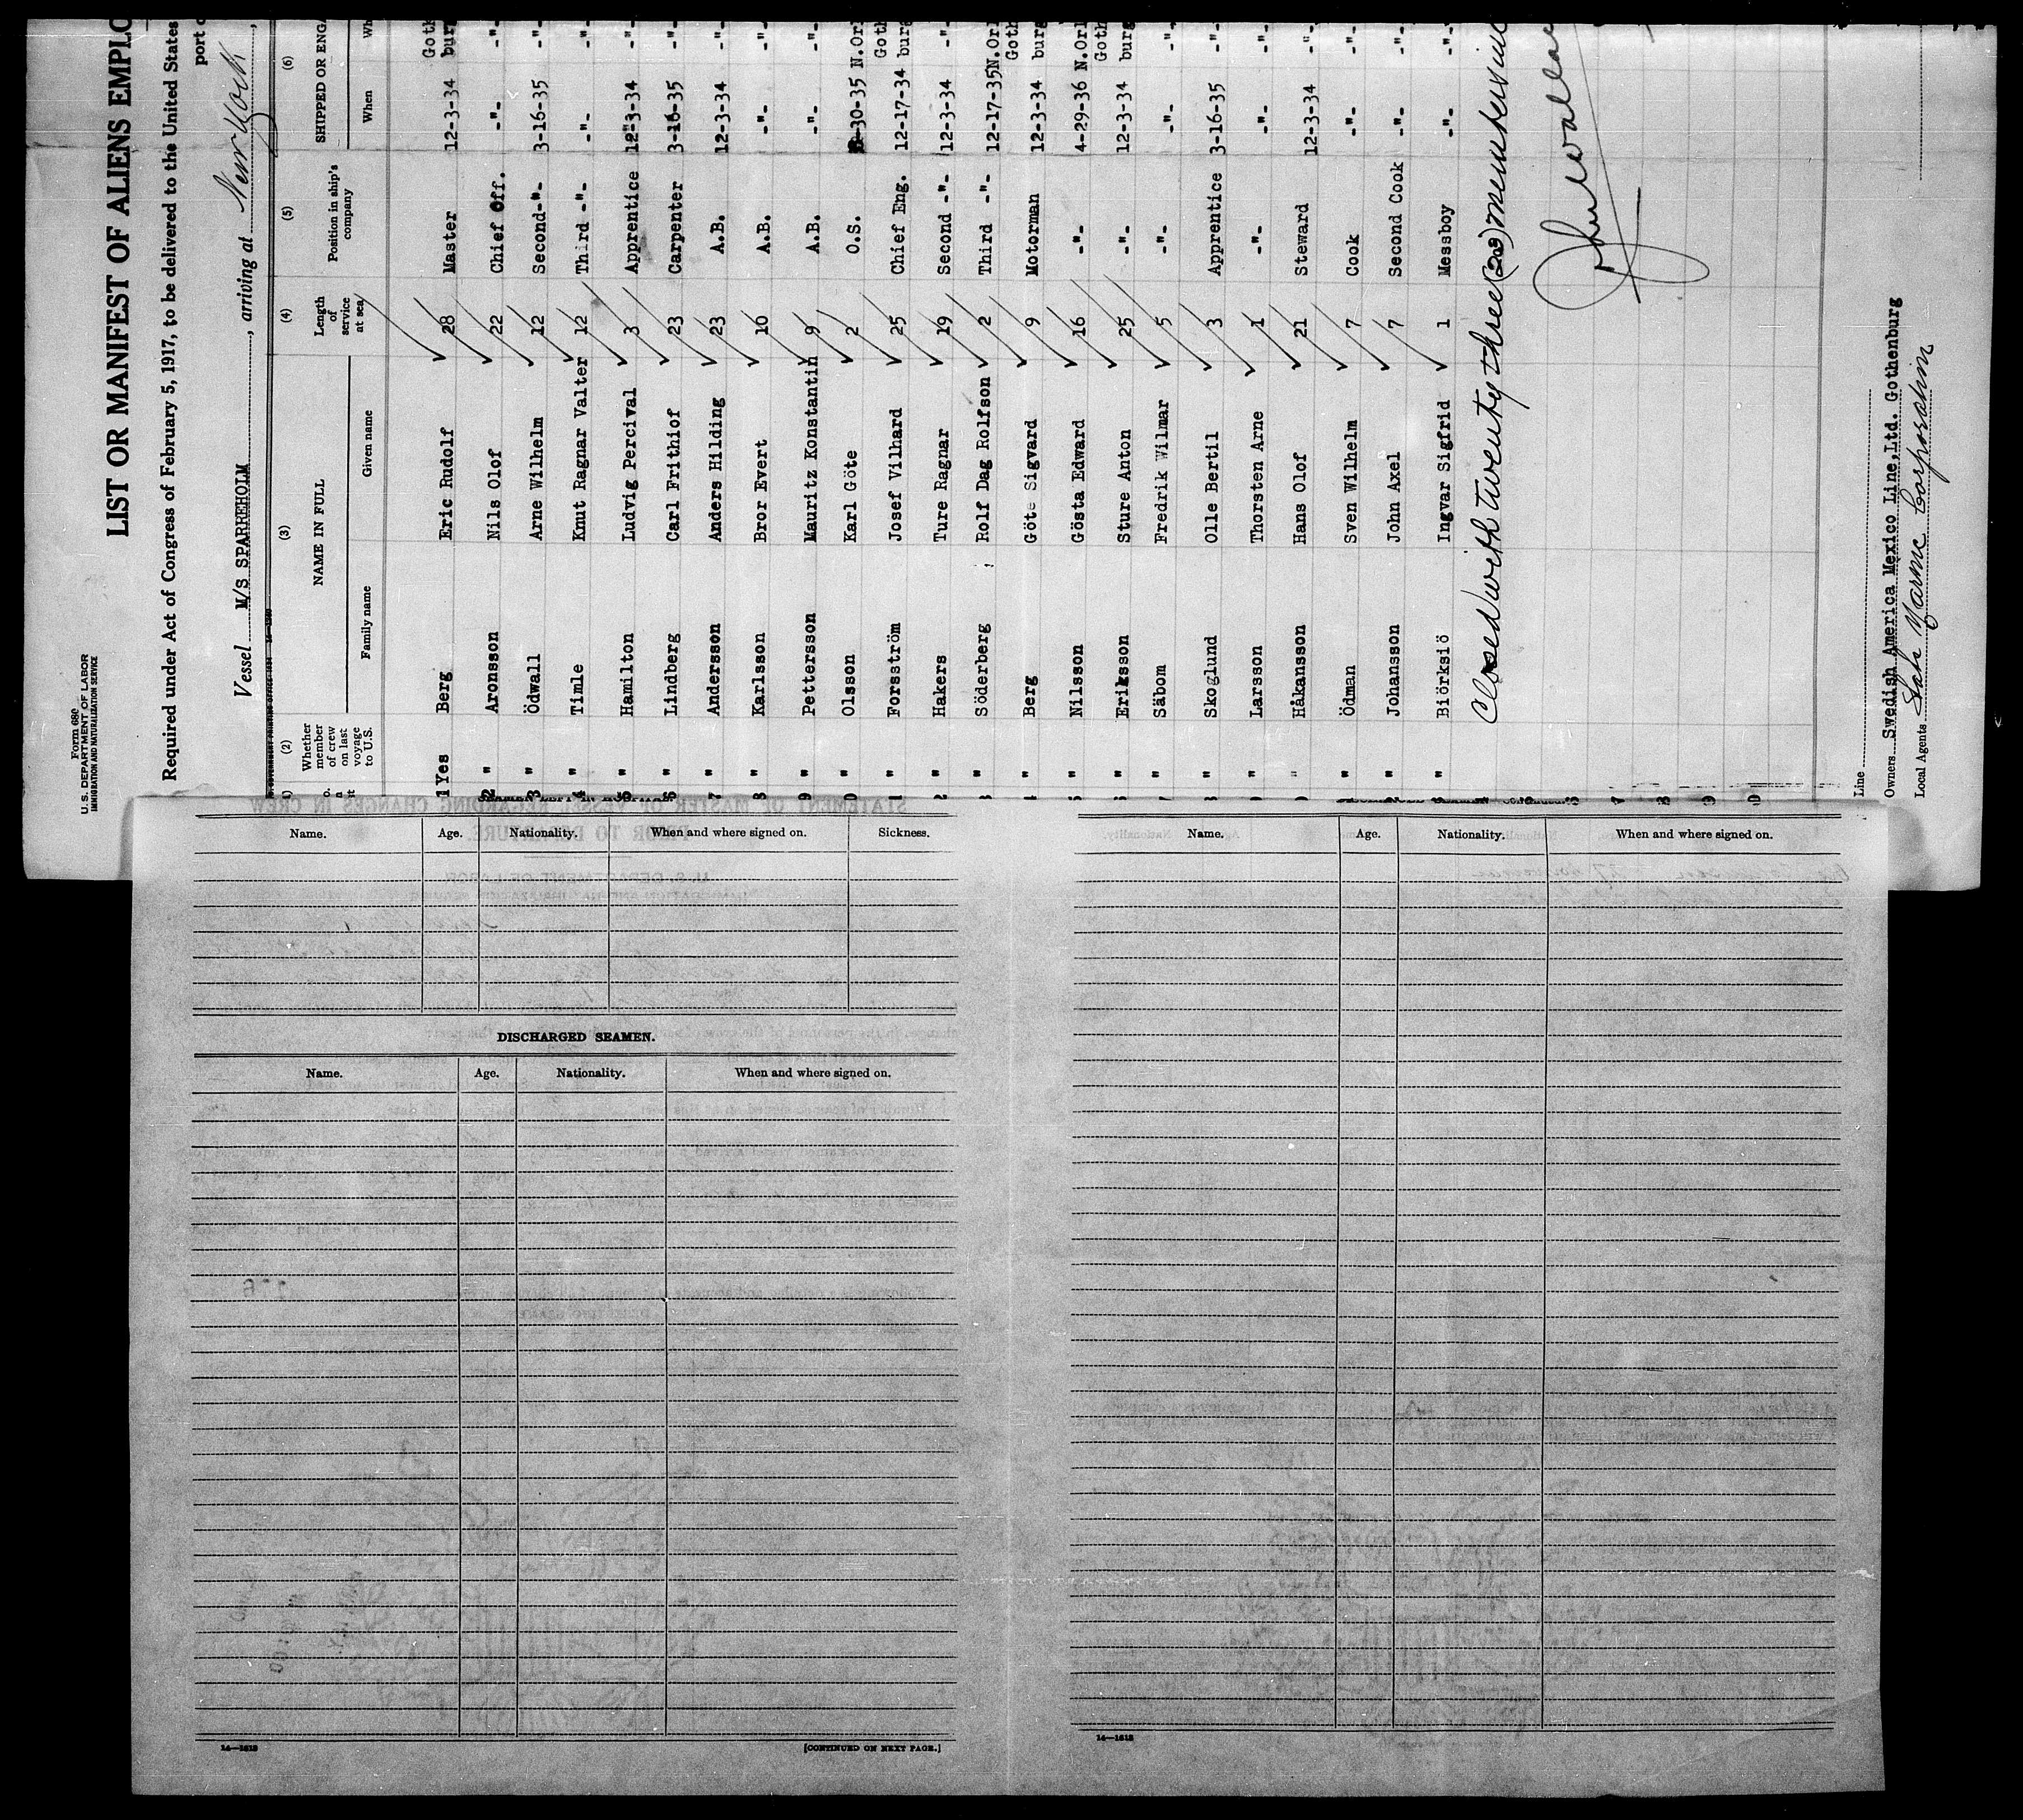 Form 680
U.S. DEPARTMENT OF LABOR
IMMIGRATION AND NATURALIZATION SERVICE
LIST OR MANIFEST OF ALIENS EMPLO
Required under Act of Congress of February 5, 1917, to be delivered to the United States
port
Vessel M/S SPARREHOLM, arriving at New York,
(2) (3) (4) (5) (6)
Whether member of crew on last voyage to U.S. NAME IN FULL Length of service at sea Position in ship's company SHIPPED OR ENGA
Family name Given name When Wh
1 Yes Berg Eric Rudolf 28 Master 12-3-34 Goth burg
2 " Aronsson Nils Olof 22 Chief Off. -"- -"-
3 " Ödwall Arne Wilhelm 12 Second-"- 3-16-35 -"-
4 " Timle Knut Ragnar Valter 12 Third -"- -"- -"-
5 " Hamilton Ludvig Percival 3 Apprentice 12-3-34 -"-
6 " Lindberg Carl Frithiof 23 Carpenter 3-16-35 -"-
7 " Andersson Anders Hilding 23 A.B. 12-3-34 -"-
8 " Karlsson Bror Evert 10 A.B. -"- -"-
9 " Pettersson Mauritz Konstantin 9 A.B. -"- -"-
0 " Olsson Karl Göte 2 O.S. -30-35 N.Orl
1 " Forsström Josef Vilhard 25 Chief Eng. 12-17-34 Goth burg
2 " Hakers Ture Ragnar 19 Second -"- 12-3-34 -"-
3 " Söderberg Rolf Dag Rolfson 2 Third -"- 12-17-35 N.Orl
4 " Berg Göte Sigvard 9 Motorman 12-3-34 Goth burg
5 " Nilsson Gösta Edward 16 -"- 4-29-36 N.Orl
6 " Eriksson Sture Anton 25 -"- 12-3-34 Goth burg
7 " Säbom Fredrik Wilmar 5 -"- -"- -"-
8 " Skoglund Olle Bertil 3 Apprentice 3-16-35 -"-
9 " Larsson Thorsten Arne 1 -"- -"- -"-
0 " Håkansson Hans Olof 21 Steward 12-3-34 -"-
1 " Ödman Sven Wilhelm 7 Cook -"- -"-
2 " Johansson John Axel 7 Second Cook -"- -"-
3 " Biörksiö Ingvar Sigfrid 1 Messboy -"- -"-
Closed with twenty three (23) members
John Wallac
Line
Owners Swedish America Mexico Line,Ltd. Gothenburg
Local Agents Corporation
Name. Age. Nationality. When and where signed on. Sickness.
DISCHARGED SEAMEN.
Name. Age. Nationality. When and where signed on.
14—1613
[CONTINUED ON NEXT PAGE.]
Name. Age. Nationality. When and where signed on.
14—1613